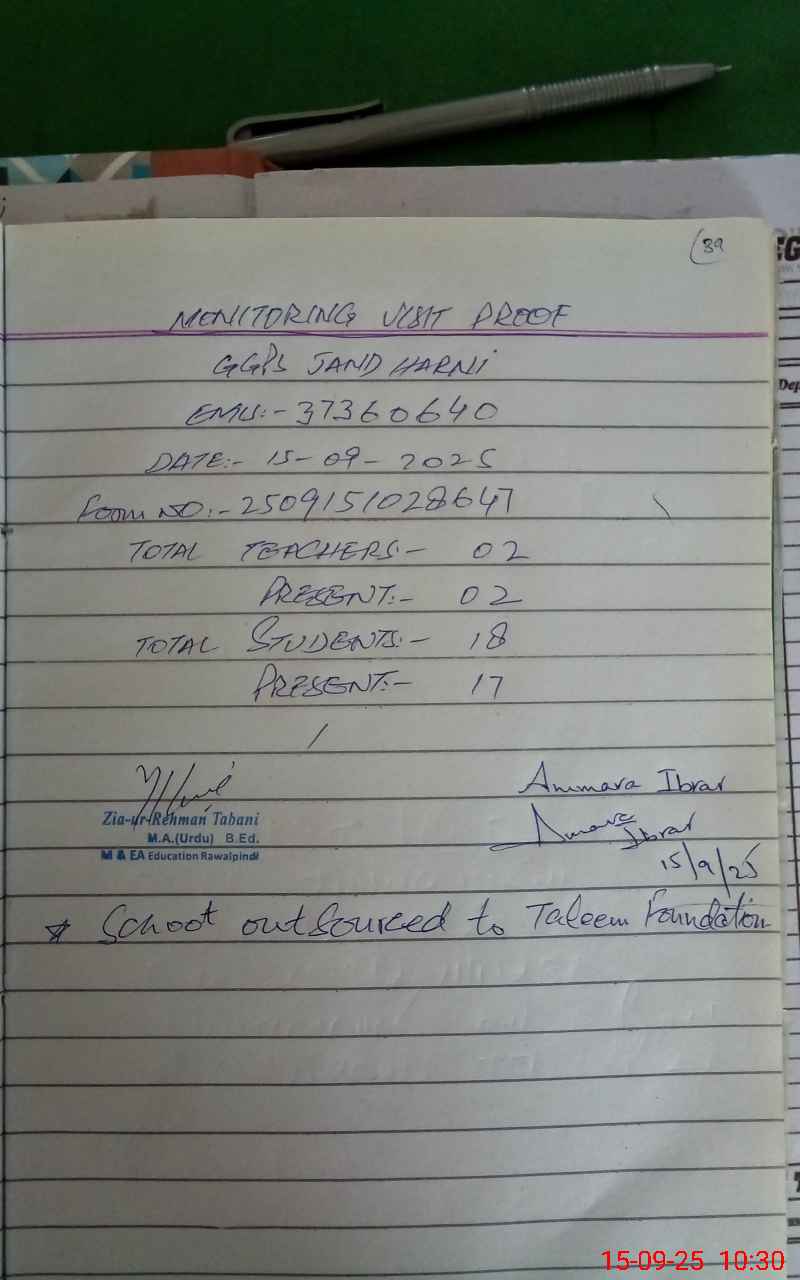 39
MONITORING VISIT PROOF
GGPS JAND HARNI
EMIS:- 37360640
DATE:- 15-09-2025
Form NO:- 2509151028647
TOTAL TEACHERS:- 02
PRESENT:- 02
TOTAL STUDENTS:- 18
PRESENT:- 17
Ammara Ibrar
Zia-ur-Rehman Tabani
M.A.(Urdu) B.Ed.
M & EA Education Rawalpindi
Amara
Ibrar
15/9/25
* School outsourced to Taleem Foundation
15-09-25 10:30